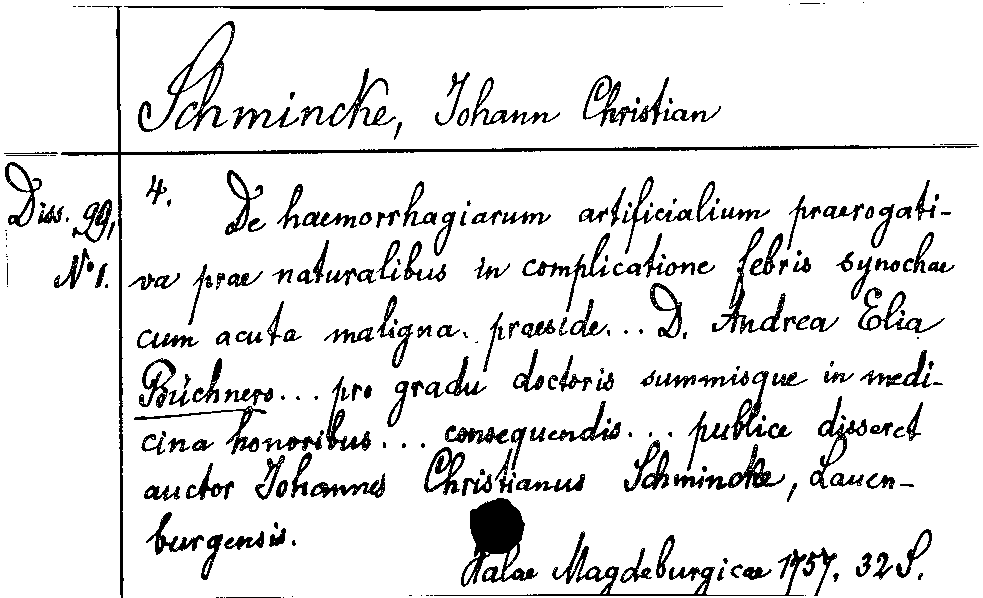 Schmincke, Johann Christian
Diss. 29,
No 1.
4. De haemorrhagiarum artificialium praerogati-
va prae naturalibus in complicatione febris synochae
cum acuta maligna. praeside... D. Andrea Elia
Büchnero... pro gradu doctoris summisque in medi-
cina honoribus... consequendis... publice disseret
auctor Johannes Christianus Schmincke, Lauen-
burgensis.
Halae Magdeburgicae 1757. 32 S.